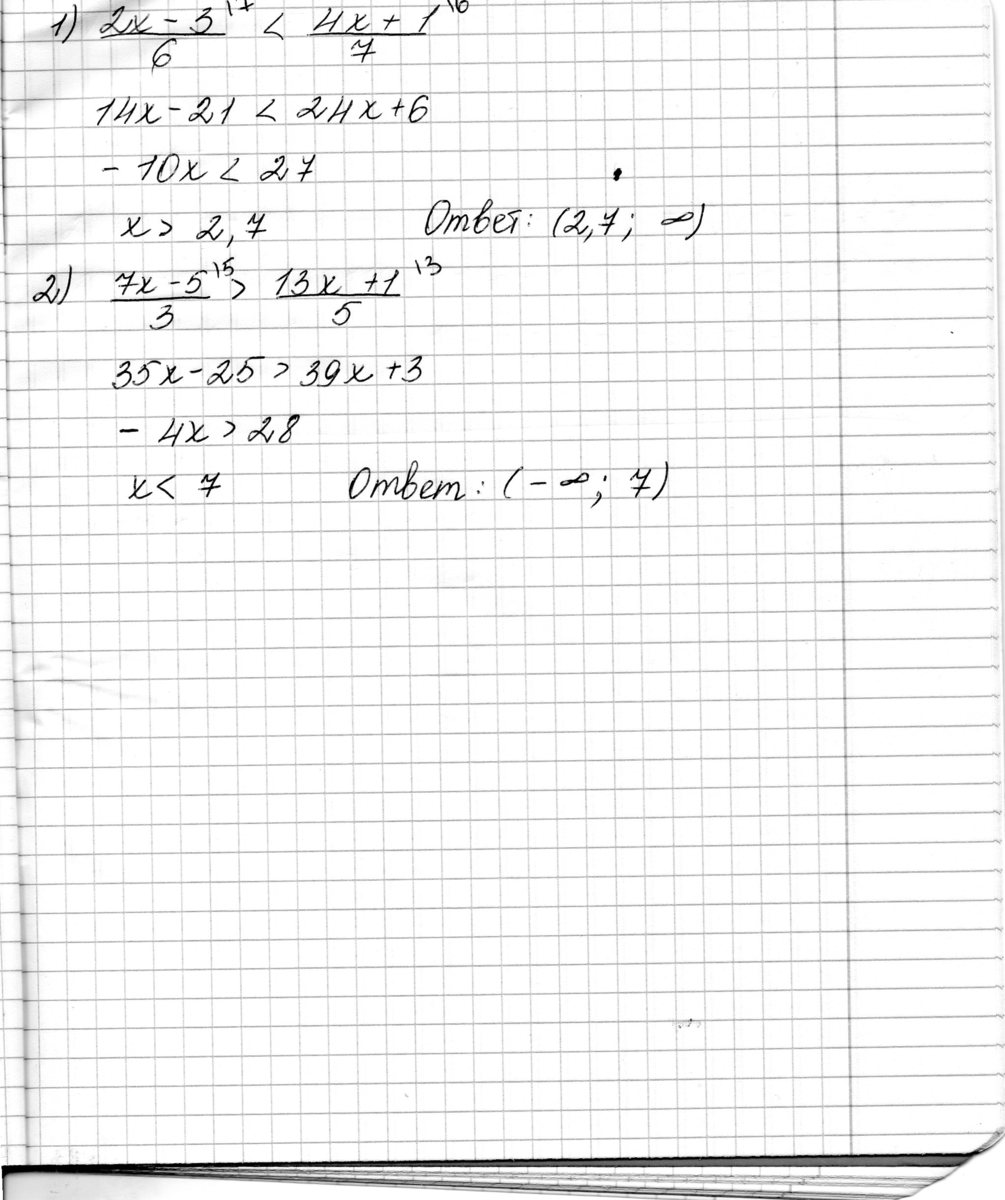 1) (2x - 3)/6 \7 < (4x + 1)/7 \6
14x - 21 < 24x + 6
- 10x < 27
x > 2,7 Ответ: (2,7; ∞)
2) (7x - 5)/3 \5 > (13x + 1)/5 \3
35x - 25 > 39x + 3
- 4x > 28
x < 7 Ответ: (- ∞; 7)